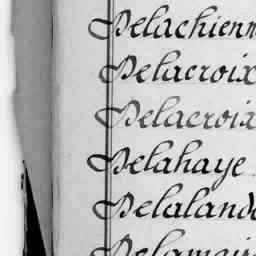 Delachienn
Delacroix
Delacroix
Delahaye
Delaland
Delamair